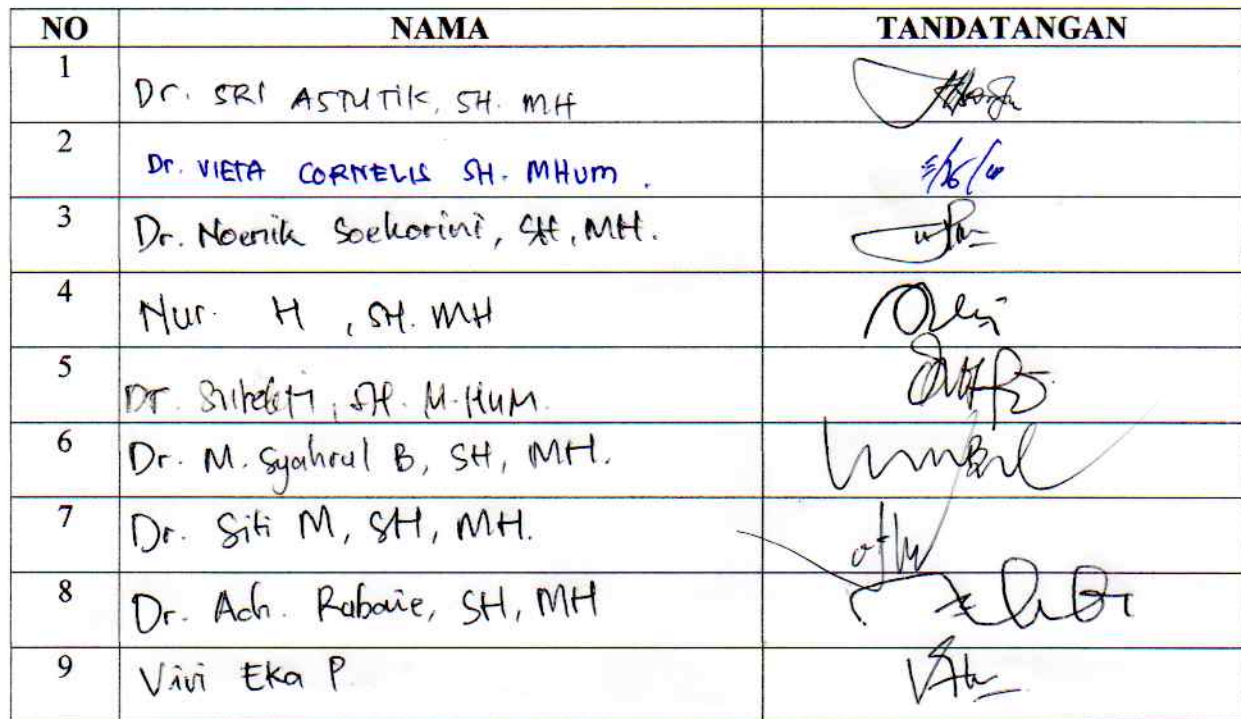 NO NAMA TANDATANGAN
1 Dr. SRI ASTUTIK, SH. MH
2 Dr. VIETA CORNELIS SH. MHum.
3 Dr. Noenik Soekorini, SH, MH.
4 Nur. H , SH. MH
5 Dr. Subekti, SH. M.HUM.
6 Dr. M. Syahrul B, SH, MH.
7 Dr. Siti M, SH, MH.
8 Dr. Ach. Rubaie, SH, MH
9 Vivi Eka P.